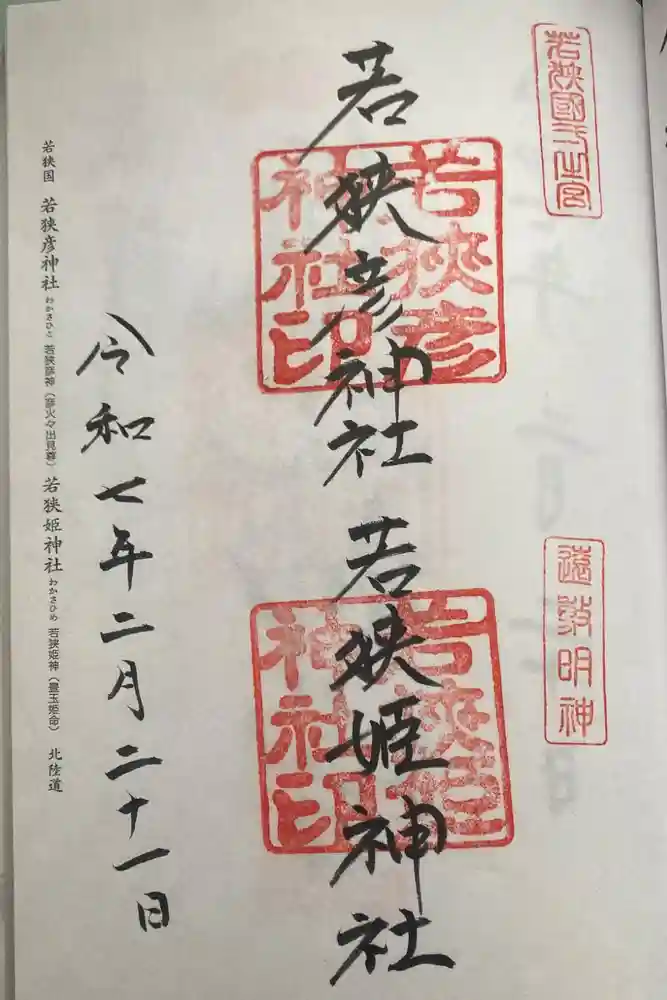 若狹國一之宮
遠敷明神
若狭彦神社
若狹彦
神社印
若狭姫神社
若狹姫
神社印
令和七年二月二十一日
若狭国 若狭彦神社 わかさひこ 若狭彦神（彦火々出見尊） 若狭姫神社 わかさひめ 若狭姫神（豊玉姫命） 北陸道